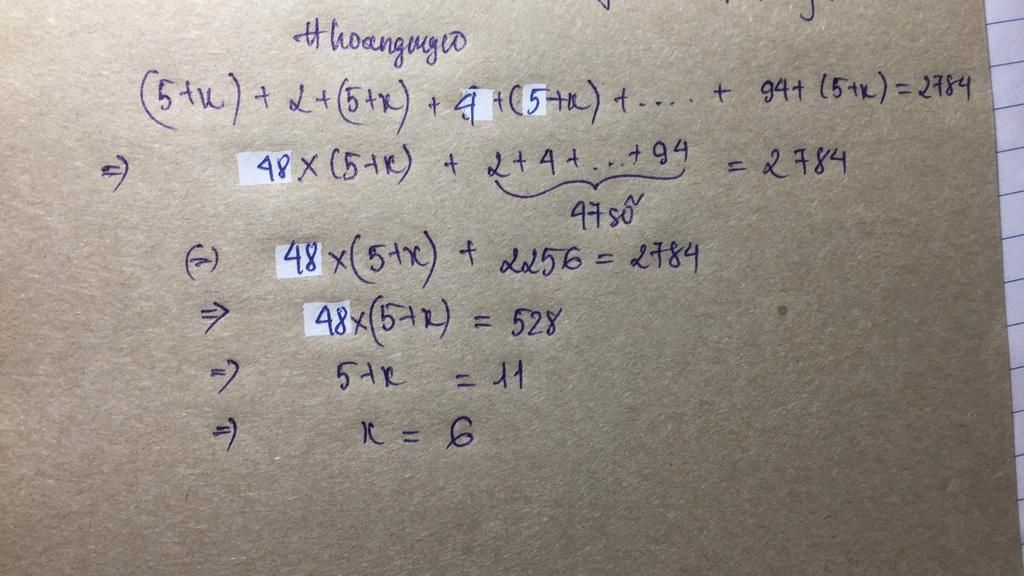 #hoangduyeo
(5+x) + 2 + (5+x) + 4 + (5+x) + .... + 94 + (5+x) = 2784
=> 48 x (5+x) + 2 + 4 + ... + 94 = 2784
47 số
(=) 48 x (5+x) + 2256 = 2784
=> 48 x (5+x) = 528
=> 5+x = 11
=> x = 6